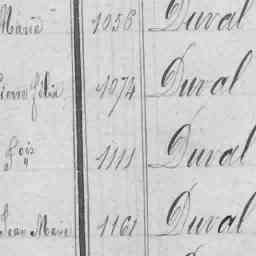 Marie 1056 Duval
Pierre félix 1074 Duval
Fois 1111 Duval
Jean Marie 1161 Duval